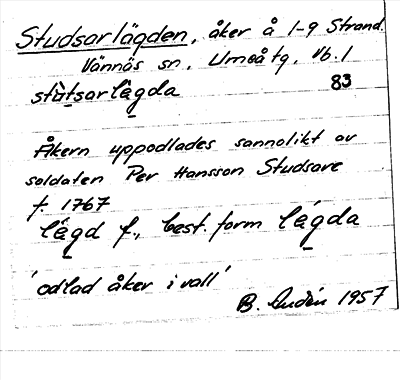 Studsarlägden, åker å 1-9 Strand.
Vännäs sn, Umeå tg, Vb. 1
83
stùtsarlägda
Åkern uppodlades sannolikt av
soldaten Per Hansson Studsare
f. 1767
lägd f., best. form lägda
'odlad åker i vall'
B. 1957